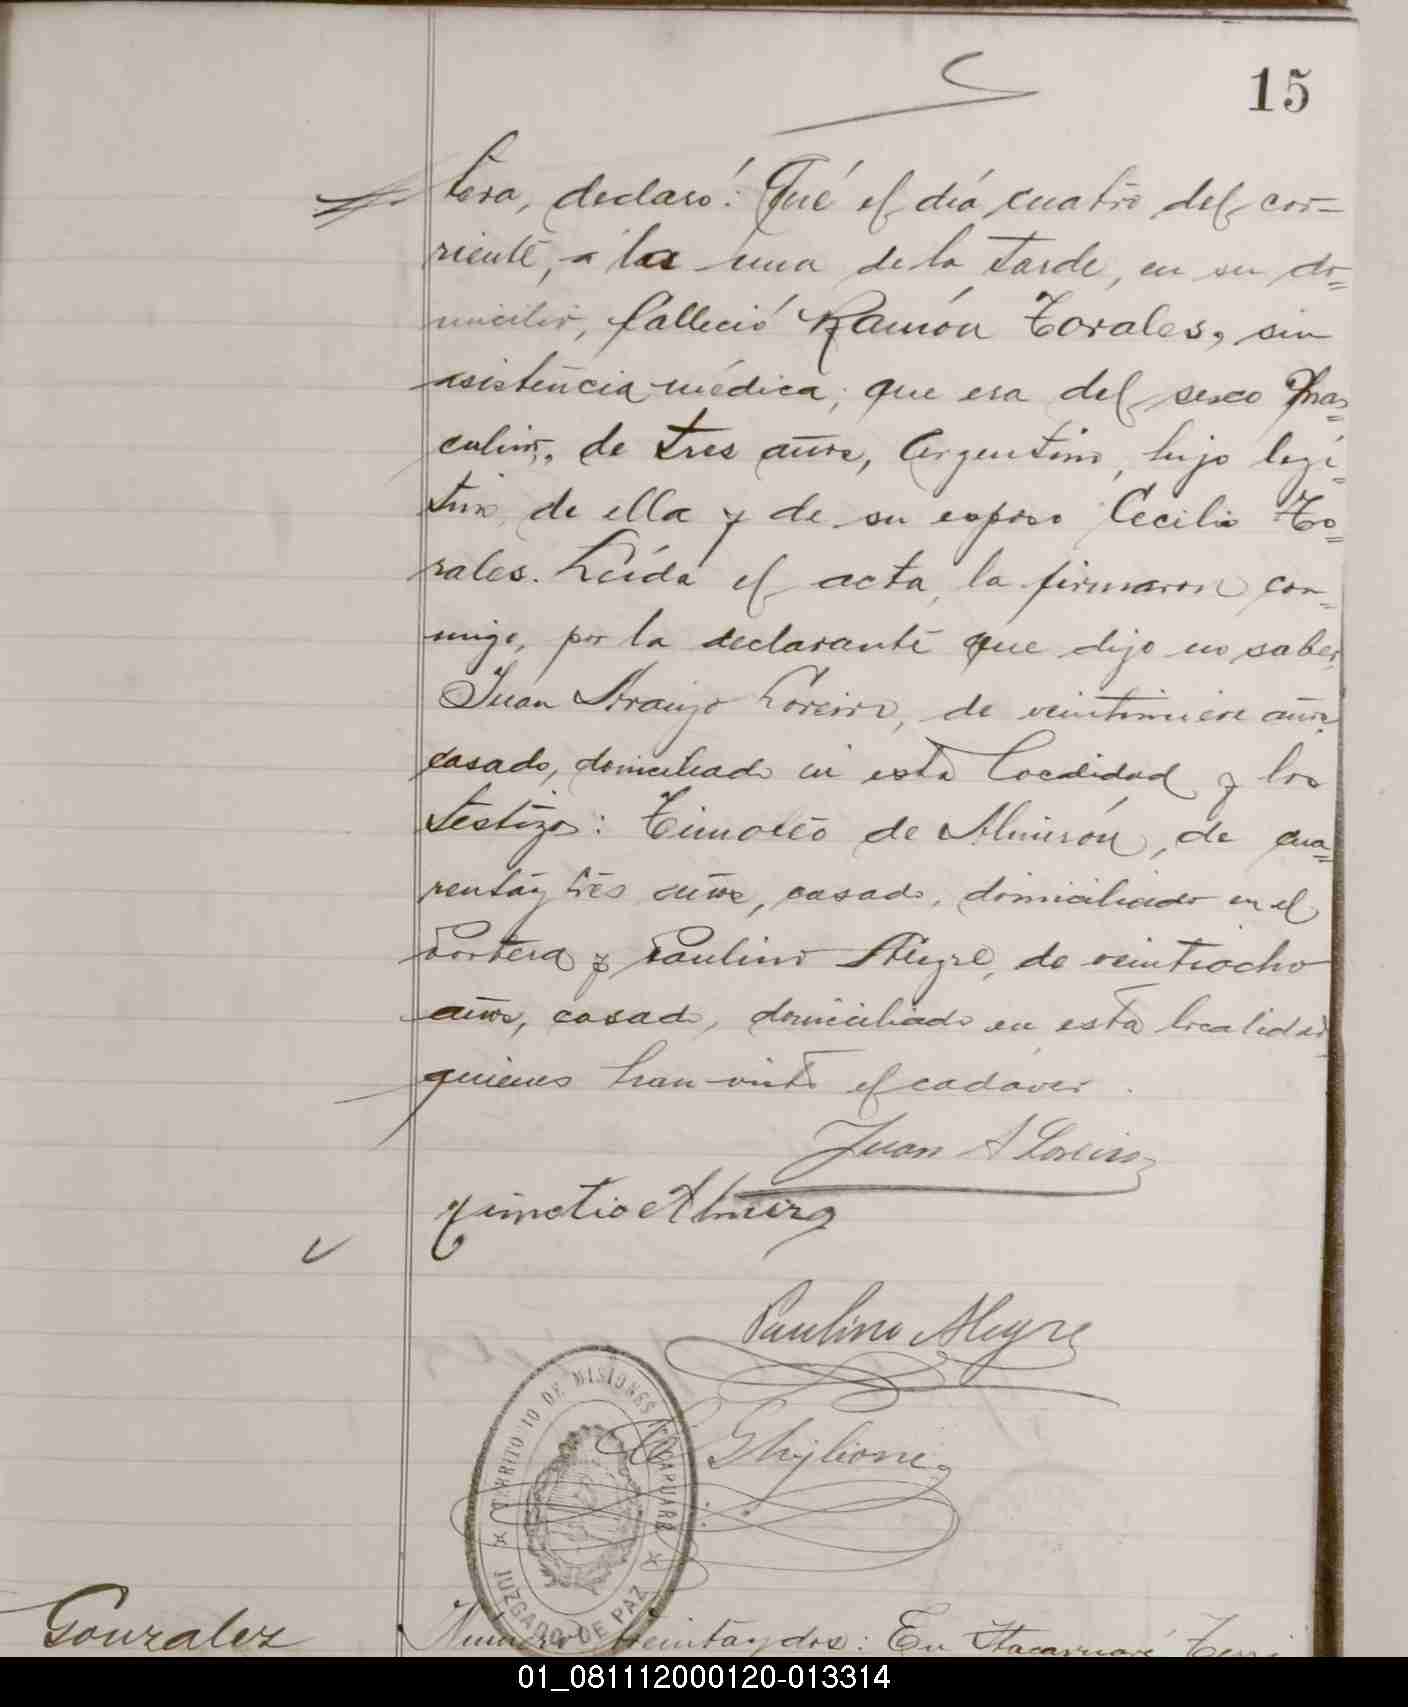 15
tera, declaró: Qué el día cuatro del cor=
riente, a la una de la tarde, en su do=
micilio, falleció Ramón Torales, sin
asistencia médica; que era del sexo mas=
culino, de tres años, Argentino, hijo legí=
timo, de ella y de su esposo Cecilio To=
rales. Leída el acta, la firmaron con=
migo, por la declarante que dijo no saber,
Juan Araujo Loreiro, de veintinueve años,
casado, domiciliado en esta localidad y los
testigos: Timoteo de Almirón, de cua=
renta y tres años, casado, domiciliado en el
Portera y Paulino Alegre, de veintiocho
años, casado, domiciliado en esta localidad
quienes han visto el cadáver.
Juan A Loreiro
Timotio Almiro
Paulino Alegre
Ghiglione
TERRITORIO DE MISIONES ITACARUARE
JUZGADO DE PAZ
Gonzalez
Número treinta y dos: En Itacaruaré, Terri
01_081112000120-013314